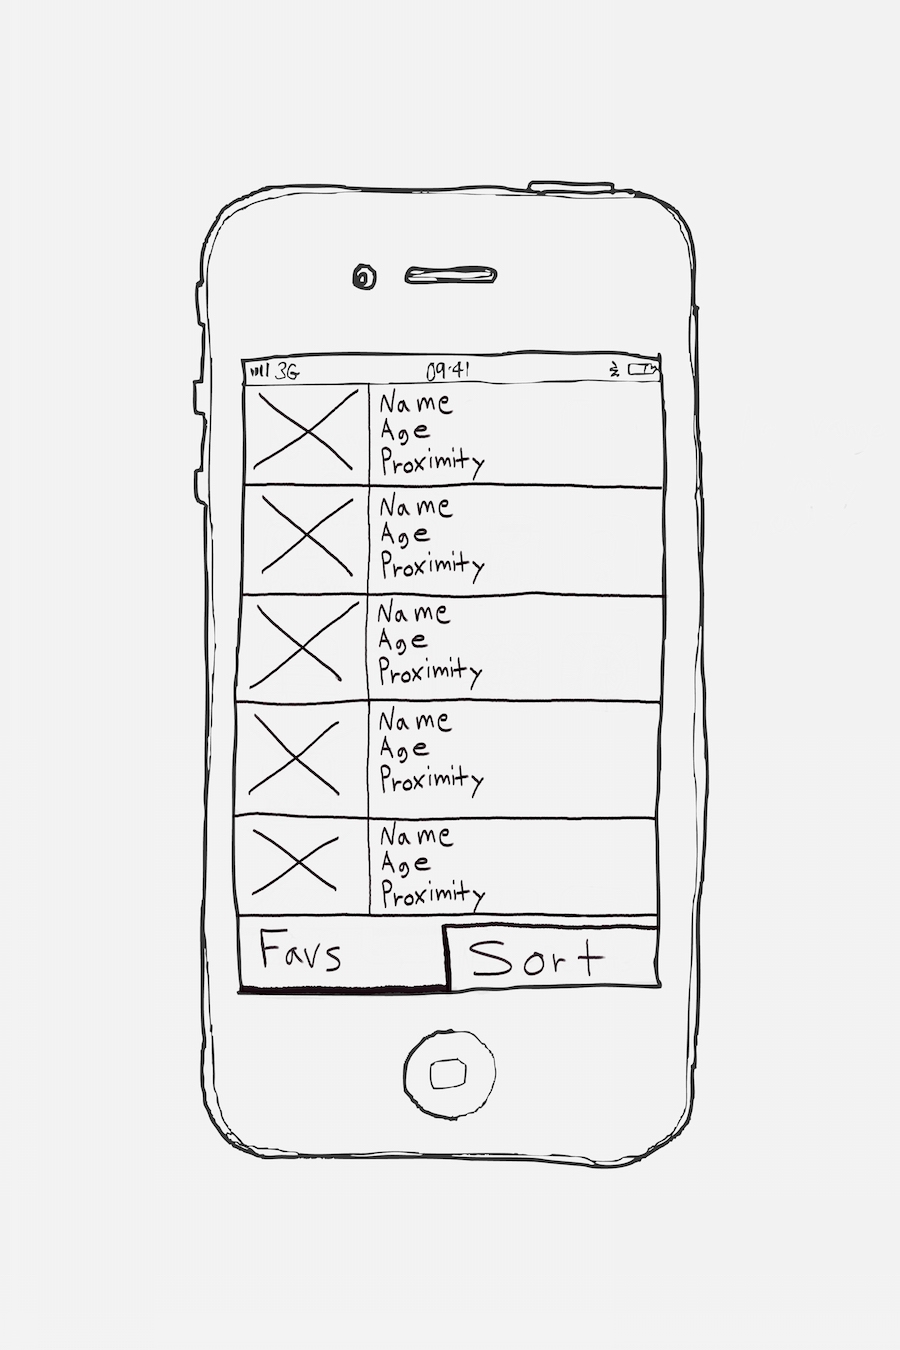 3G 09:41
Name
Age
Proximity
Name
Age
Proximity
Name
Age
Proximity
Name
Age
Proximity
Name
Age
Proximity
Favs
Sort